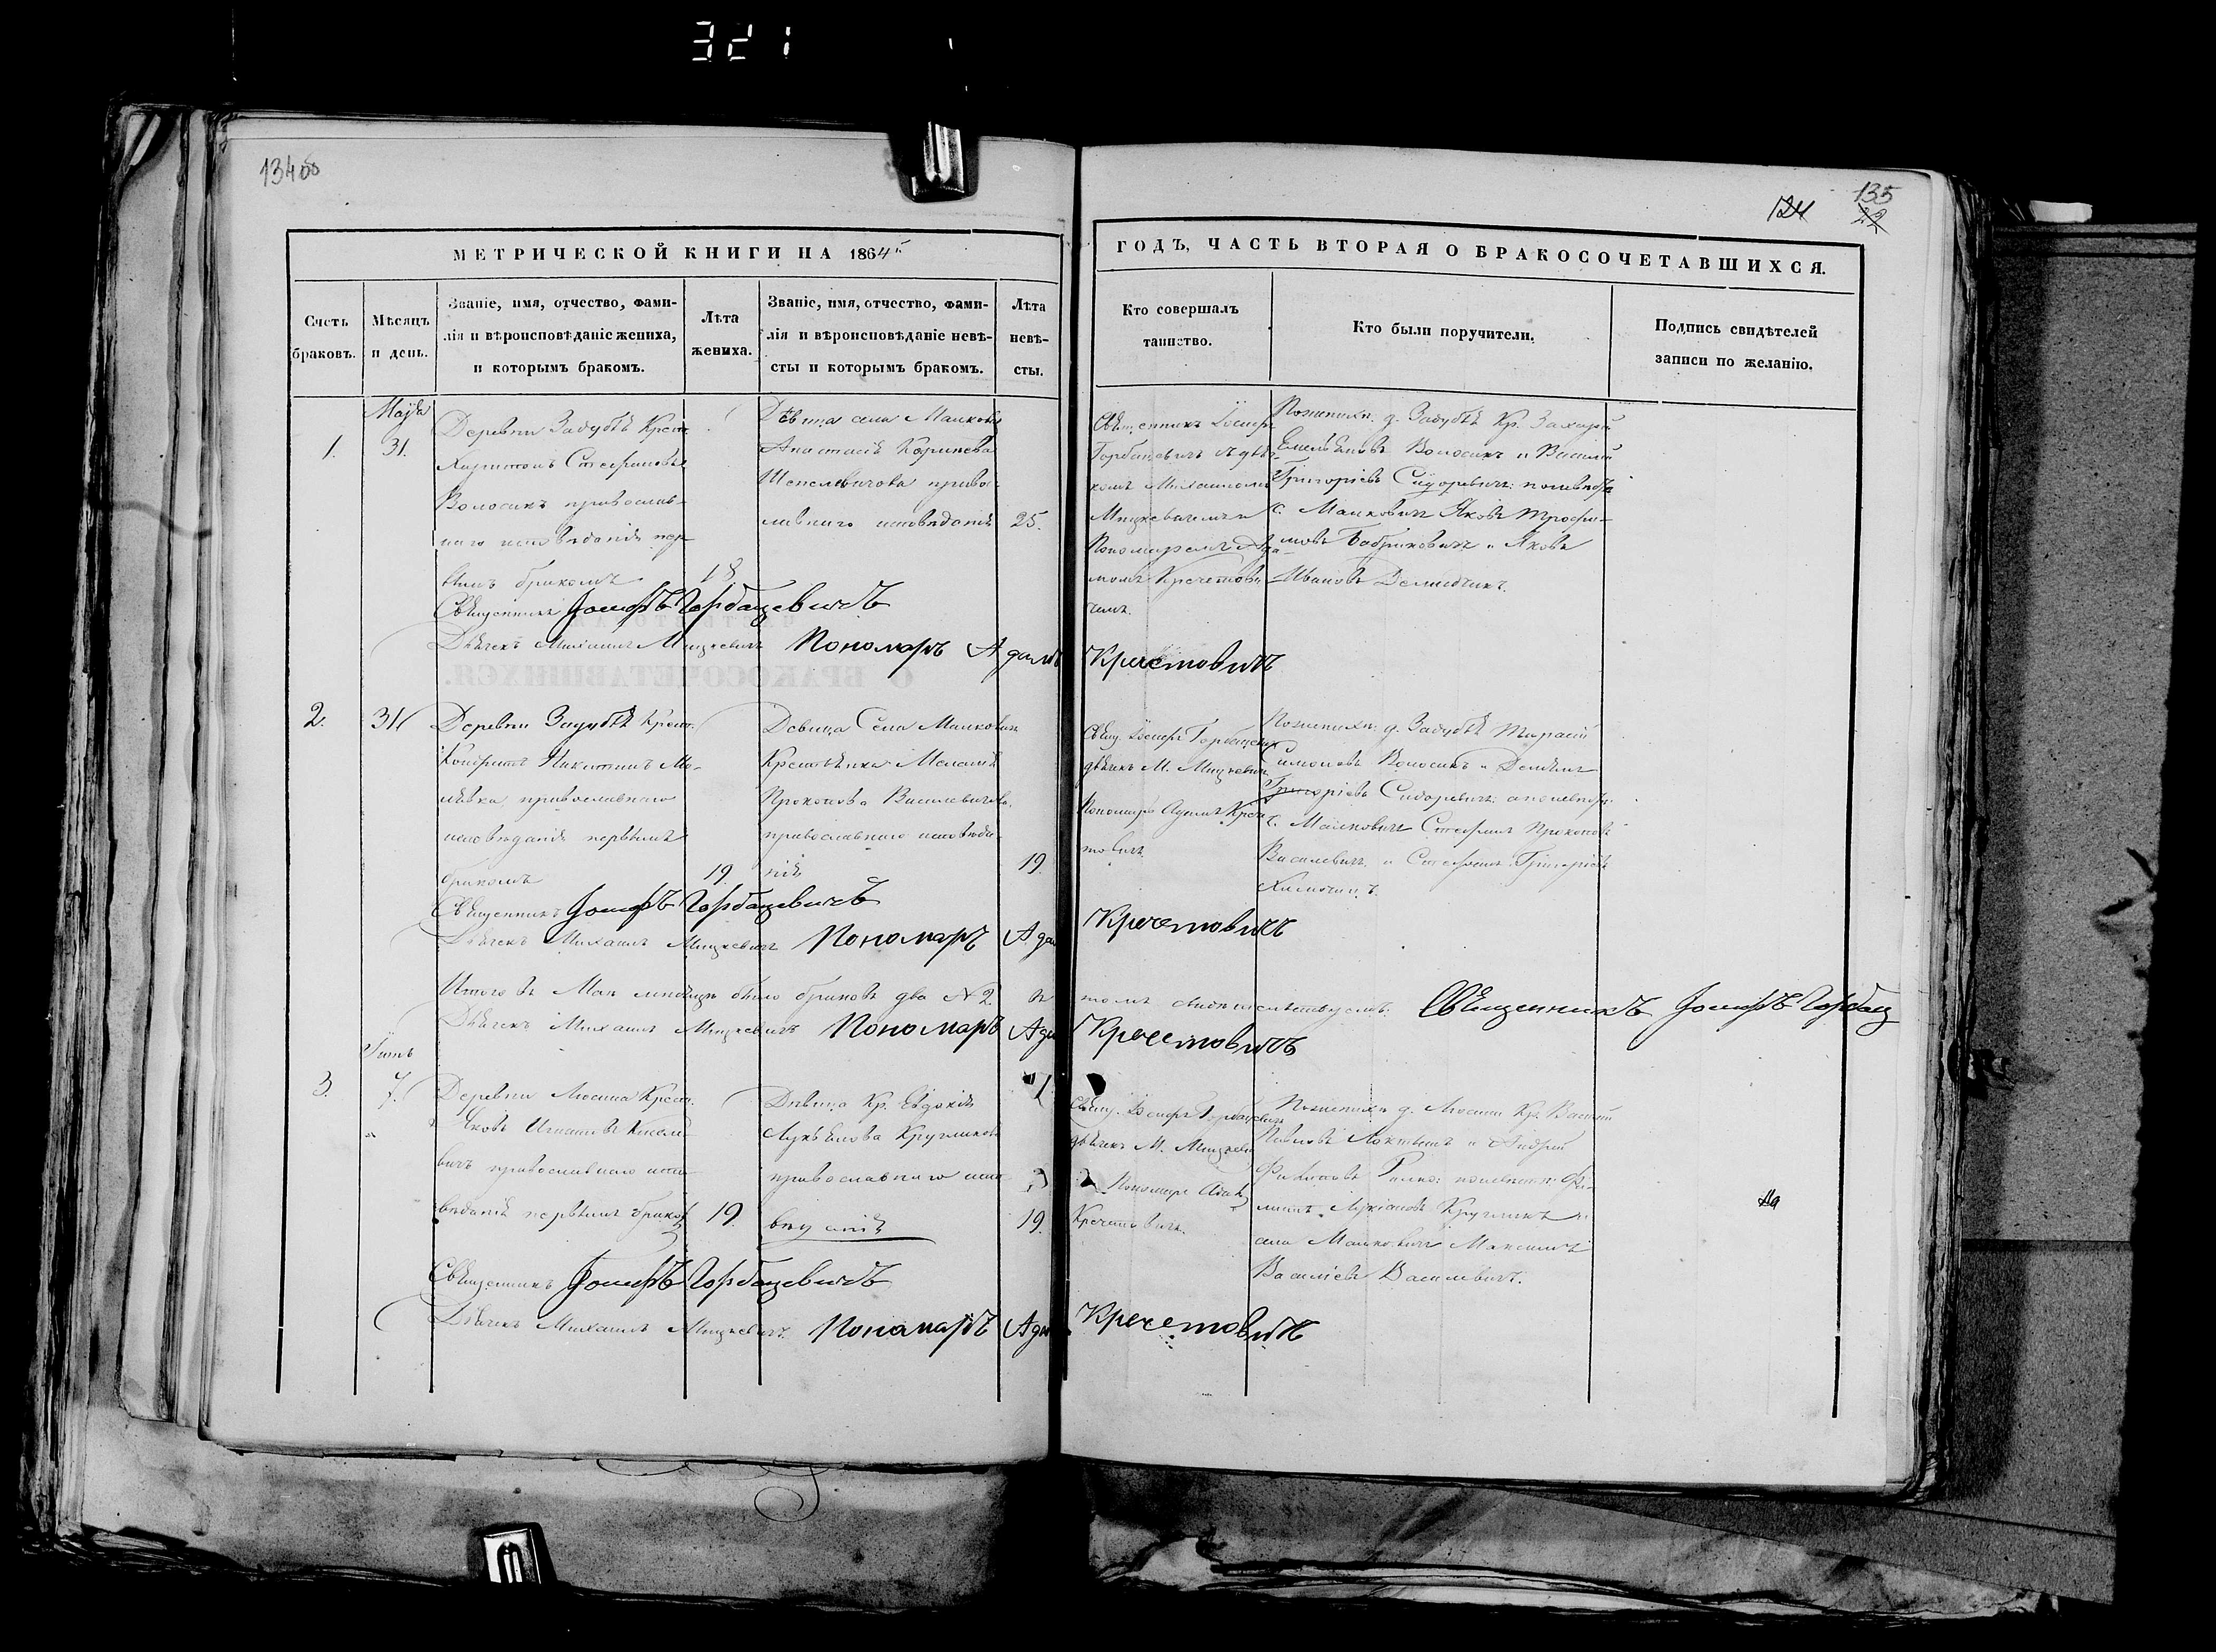 321
134об
124
135
22
МЕТРИЧЕСКОЙ КНИГИ НА 1864
ГОДЪ, ЧАСТЬ ВТОРАЯ О БРАКОСОЧЕТАВШИХСЯ.
Счетъ
браковъ.
Мѣсяцъ
и день.
Званіе, имя, отчество, фами-
лія и вѣроисповѣданіе жениха,
и которымъ бракомъ.
Лѣта
жениха.
Званіе, имя, отчество, фами-
лія и вѣроисповѣданіе невѣ-
сты и которымъ бракомъ.
Лѣта
невѣ-
сты.
Кто совершалъ
таинство.
Кто были поручители.
Подпись свидѣтелей
записи по желанію.
1.
31.
Деревни Задубѣ Крест.
Харитонъ Стефановъ
Волосикъ православ-
наго исповѣданія пер-
вымъ бракомъ
18
Дѣвица села Малкович
Анастасія
православнаго исповѣданія
25.
Священникъ Іосифъ
Горбацевичъ съ дья-
комъ Михаиломъ
Мицкевичемъ и
Пономаремъ Ада-
момъ Кречетови-
чемъ.
д. Задубѣ Кр. Захарій
Емельяновъ Волосикъ и Василій
Григоріевъ Сидоревичъ; по невѣстѣ
с. Малковичъ Яковъ Трофи-
мовъ Бабриковичъ и Яковъ
Ивановъ Демидчикъ.
Священникъ Іосифъ Горбацевичъ
Дьячекъ Михаилъ Мицкевичъ Пономаръ Адамъ Кречетовичъ
2.
31
Деревни Задубѣ Крест.
Кондратъ Никитинъ
православнаго
исповѣданія первымъ
бракомъ
19.
Девица Села Малкович
Крестьянка Меланія
Прокопова Василевичова
православнаго исповѣда-
нія
19.
Свящ. Іосифъ Горбацевич
дьячекъ М. Мицкевичъ
Пономаръ Адамъ Крече-
товичъ.
д. Задубѣ Тарасій
Симоновъ Волосикъ и Демьянъ
Григоріевъ Сидоревичъ;
с. Малковичъ Стефанъ Прокоповъ
Василевичъ и Стефанъ Григоріевъ
Священникъ Іосифъ Горбацевичъ
Дьячекъ Михаилъ Мицкевичъ Пономаръ Адам Кречетовичъ
Итого въ Маѣ мѣсяцѣ было браковъ два №2. въ томъ свидѣтельствуемъ. Священникъ Іосифъ Горбац
Дьячекъ Михаилъ Мицкевичъ Пономаръ Адам Кречетовичъ
3.
7.
Деревни Люсина Крест.
Яковъ Игнатовъ Кисле-
вичъ православнаго испо-
вѣданія первымъ браком
19.
Дѣвица Кр. Евдокія
Лукьянова Кругликов
православнаго испо-
19.
Свящ. Іосифъ Горбацевич
дьячекъ М. Мицкеви
Пономаръ Адам
Кречетовичъ.
д. Люсина Кр. Василій
Павловъ Локтышъ и Андрей
Филиповъ
Лукіановъ Кругликъ и
села Малковичъ Максимъ
Василіевъ Василевичъ.
Священникъ Іосифъ Горбацевичъ
Дьячекъ Михаилъ Мицкевичъ. Пономаръ Адам Кречетовичъ